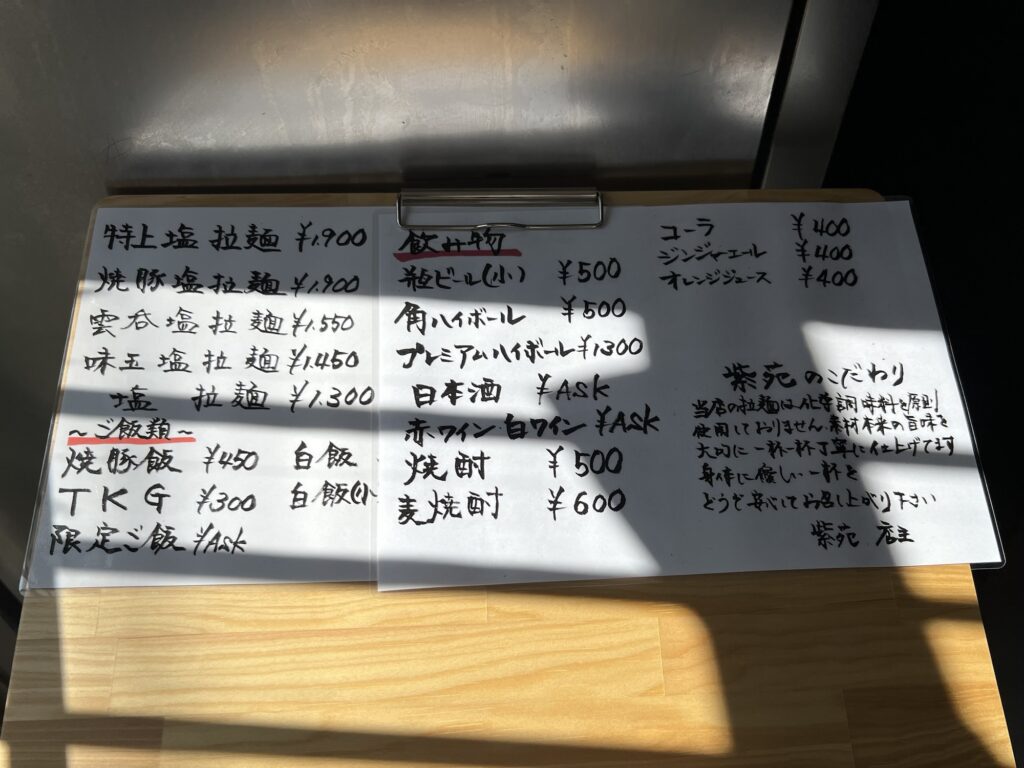 特上塩拉麺 ¥1.900
焼豚塩拉麺 ¥1.900
雲呑塩拉麺 ¥1.550
味玉塩拉麺 ¥1.450
塩 拉麺 ¥1.300
~ご飯類~
焼豚飯 ¥450 白飯
TKG ¥300 白飯(小
限定ご飯 ¥Ask
飲み物
瓶ビール(小) ¥500
角ハイボール ¥500
プレミアムハイボール ¥1300
日本酒 ¥ASK
赤ワイン 白ワイン ¥ASK
焼酎 ¥500
麦焼酎 ¥600
コーラ ¥400
ジンジャエール ¥400
オレンジジュース ¥400
紫苑のこだわり
当店の拉麺は化学調味料を原則
使用しておりません。素材本来の旨味を
大切に一杯一杯丁寧に仕上げてます
身体に優しい一杯を
どうぞ安心してお召し上がり下さい
紫苑 店主